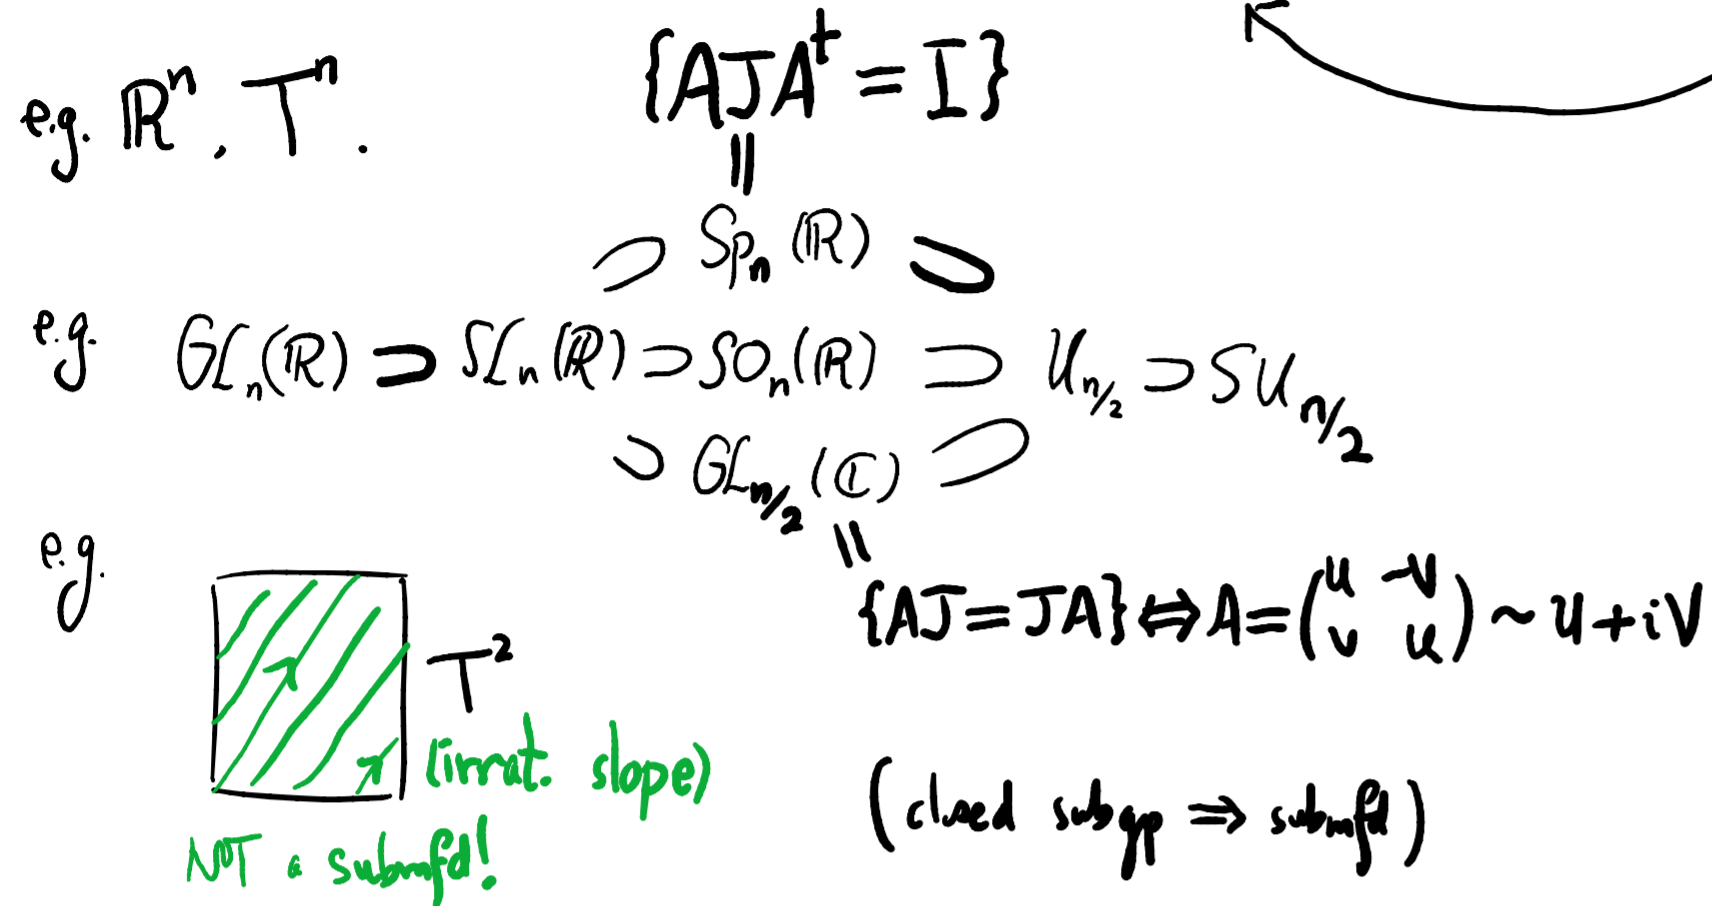 e.g. ℝⁿ, Tⁿ.
{AJAᵗ = I}
||
⊃ Spₙ(ℝ) ⊃
e.g. GLₙ(ℝ) ⊃ SLₙ(ℝ) ⊃ SOₙ(ℝ) ⊃ U_{n/2} ⊃ SU_{n/2}
⊃ GL_{n/2}(ℂ) ⊃
||
e.g.
{AJ = JA} ⇔ A = (U -V
V U) ~ U + iV
T²
(irrat. slope)
NOT a submfd!
(closed subgp ⇒ submfd)